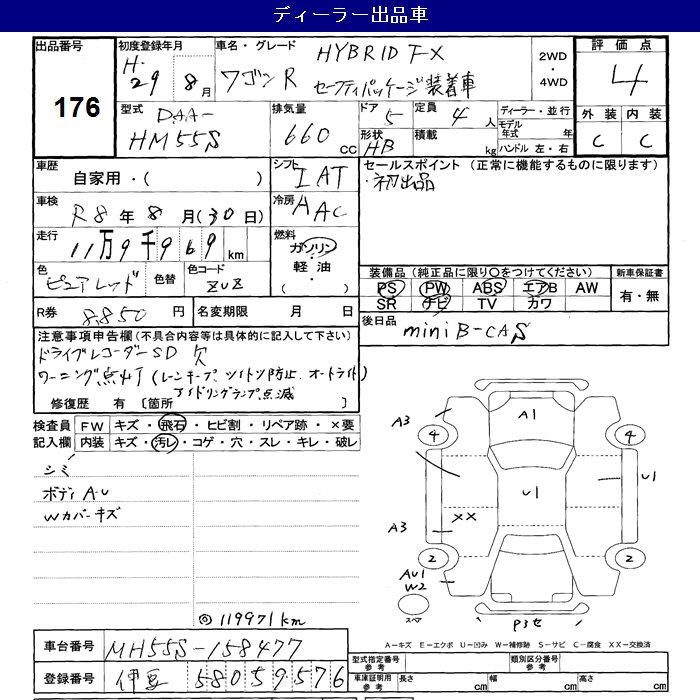 ディーラー出品車
出品番号
176
初度登録年月
H.29年8月
車名・グレード
ワゴンR HYBRID FX
セーフティパッケージ装着車
2WD
・
4WD
評価点
4
外装 内装
C C
型式
DAA-
HM55S
排気量
660 cc
ドア
5
定員
4人
形状
HB
積載
kg
ディーラー・並行
モデル年式 年
ハンドル 左・右
車歴
自家用・( )
シフト
IAT
セールスポイント (正常に機能するものに限ります)
・初出品
車検
R8年8月(30日)
冷房
AAC
走行
11万9千969km
燃料
ガソリン
・
軽油
( ・ )
色
ピュアレッド
色替
色コード
ZUZ
装備品(純正品に限り○をつけてください)
PS PW ABS エアB AW
SR ナビ TV カワ
新車保証書
有・無
R券 8,850円
名変期限 月 日
後日品
mini B-CAS
注意事項申告欄(不具合内容等は具体的に記入して下さい)
ドライブレコーダーSD欠
アイドリングランプ点滅
修復歴 有 [箇所 ]
検査員 FW キズ・飛石・ヒビ割・リペア跡・×要
記入欄 内装 キズ・汚レ・コゲ・穴・スレ・キレ・破レ
シミ
ボディAU
Wカバーキズ
◎119971km
A3
A1
4
4
U1
U1
A3
XX
2
2
AU1
W2
スペア
P3セ
A-キズ E-エクボ U-凹み W-補修跡 S-サビ C-腐食 XX-交換済
車台番号 MH55S-158477
登録番号 伊豆 580 59576
型式指定番号 参考
類別区分番号 参考
車庫証明用 参考 長さ cm 幅 cm 高さ cm